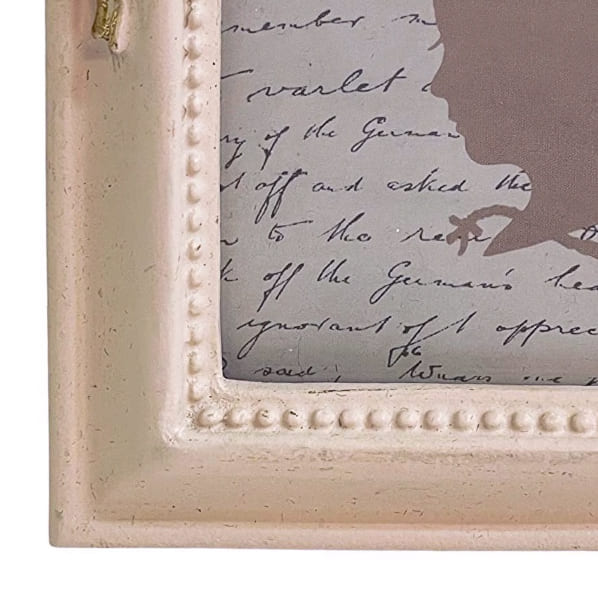 member m
varlet
of the German
off and asked the
to the rear
off the German's hea
ignorant of I apprec
said,